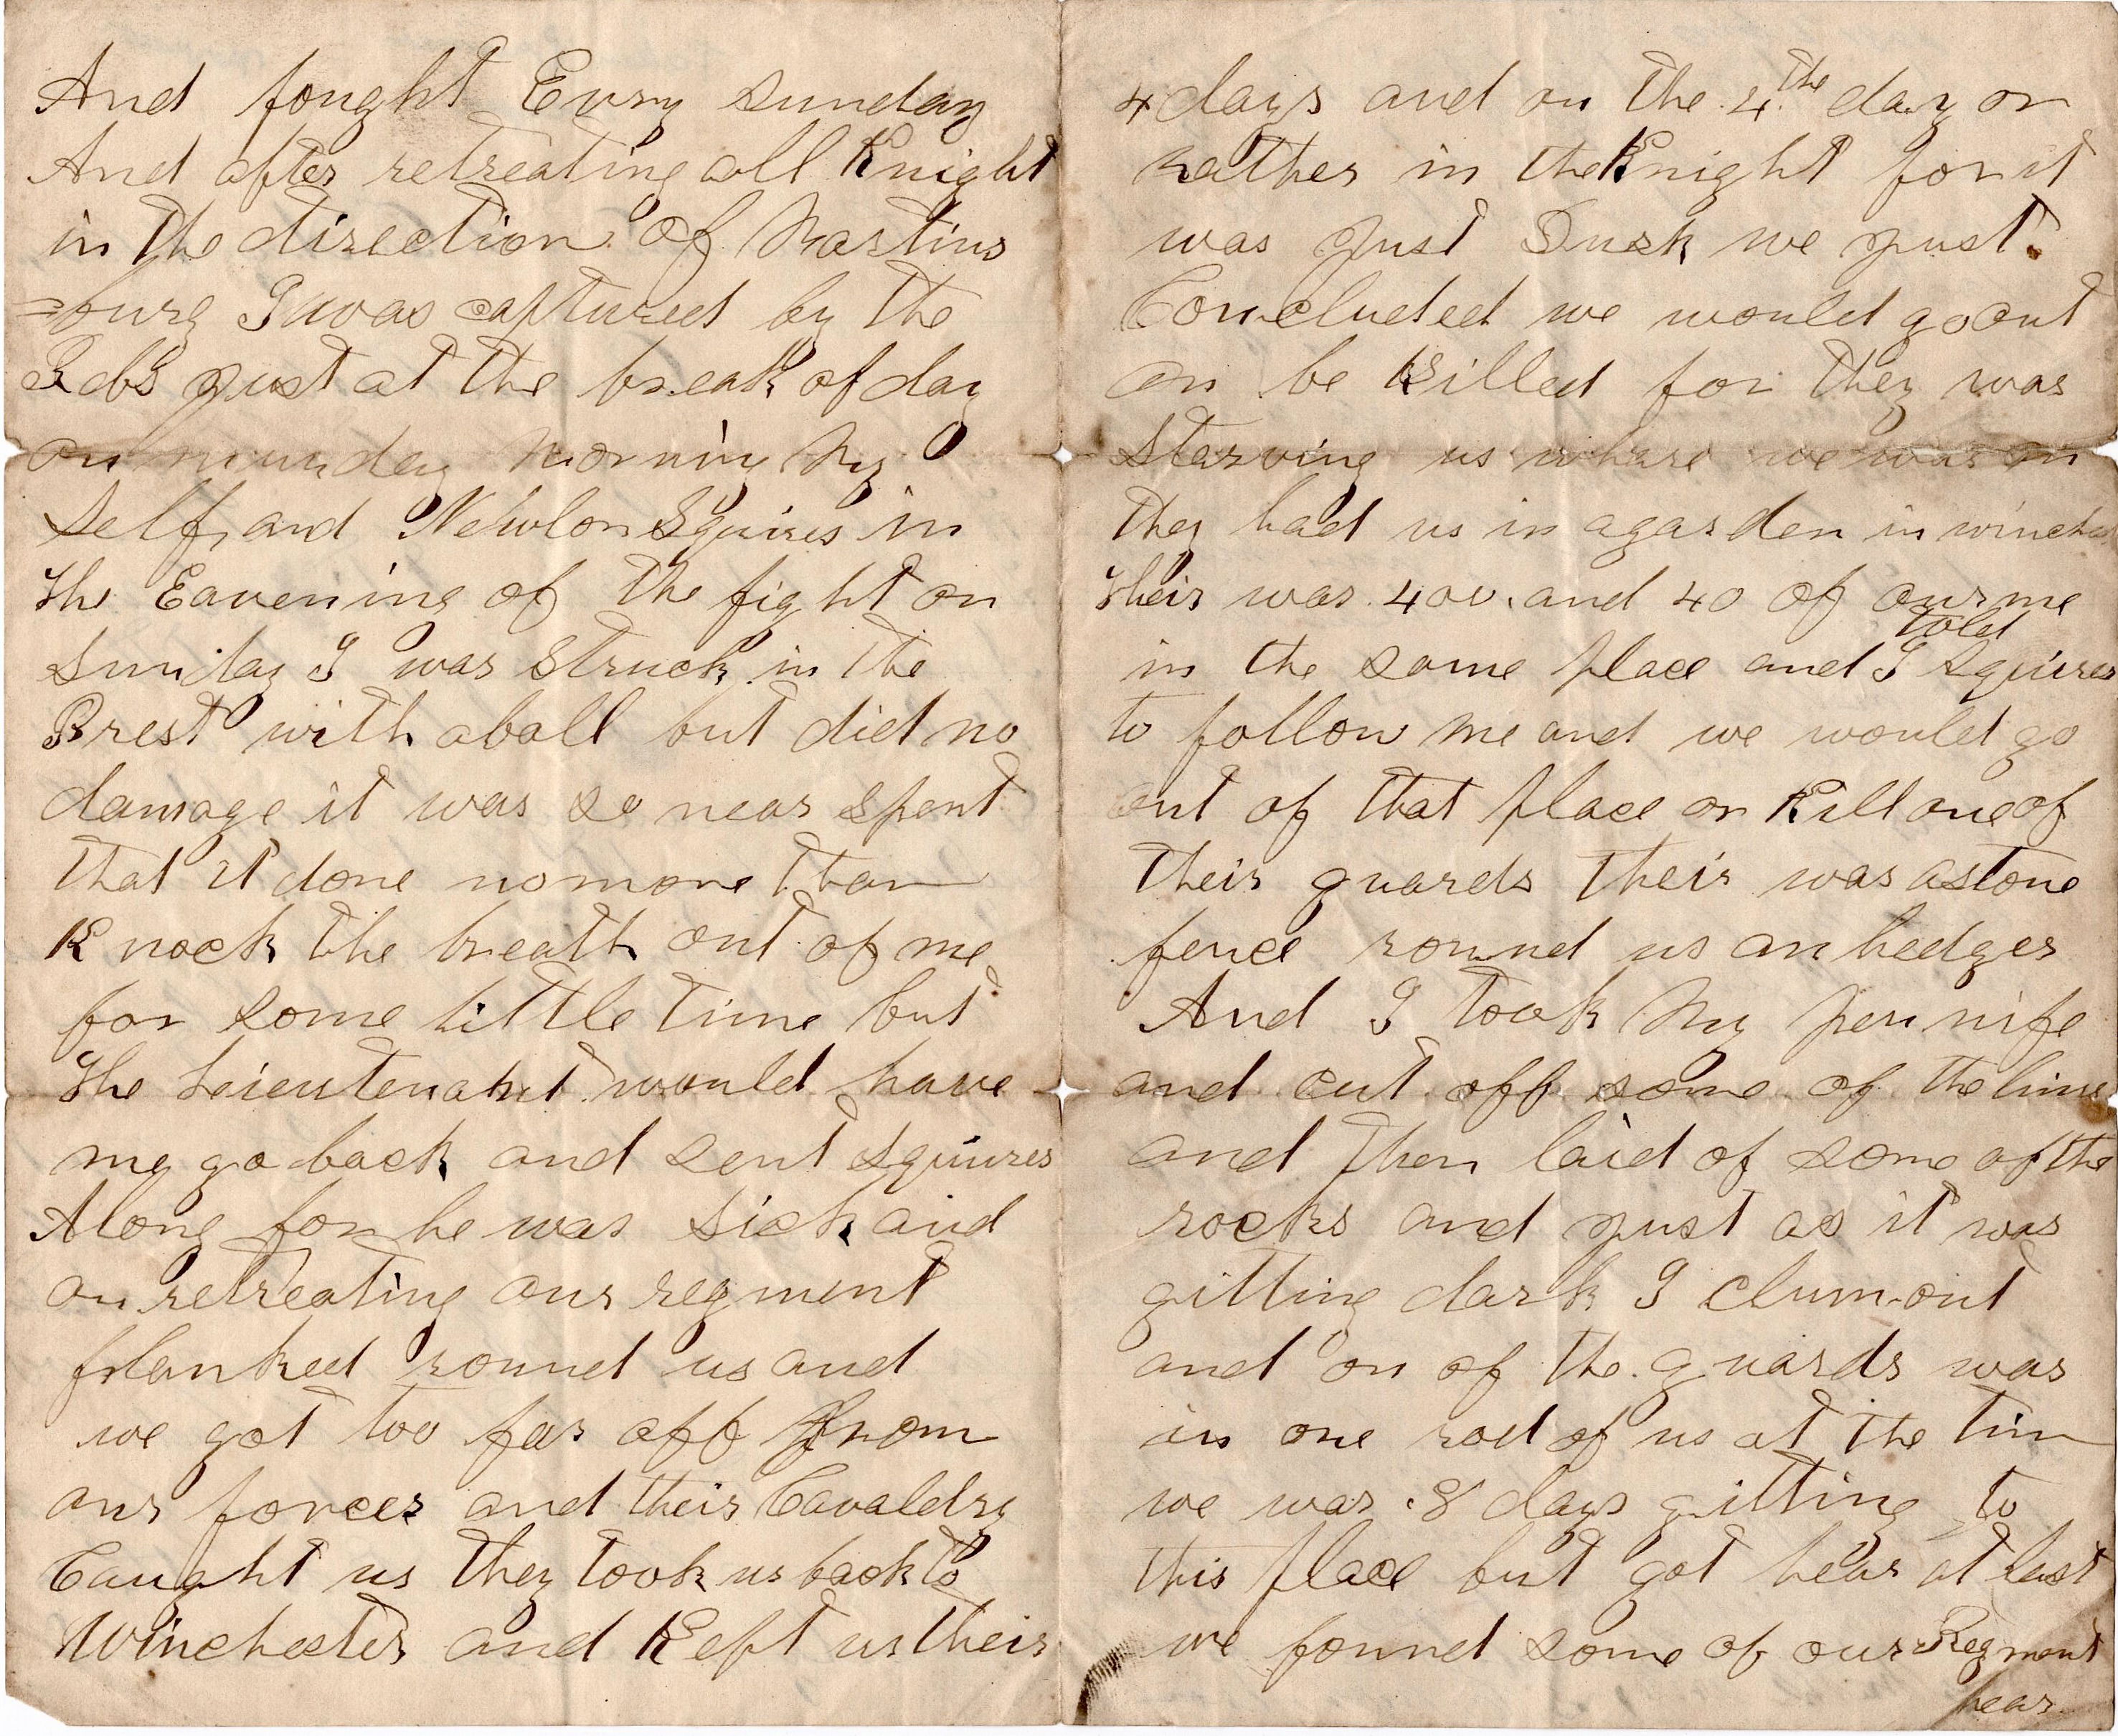 And fought Evry sunday
And after retreating all Knight
in the direction of Martins
=burg I was captured by the
Rebs just at the break of day
on munday morning My
self and Newlon Squires in
the Eavening of the fight on
sunday I was struck in the
Brest with a ball but did no
damage it was so near spent
that it done no more than
Knock the breath out of me
for some little time but
the Leieutenant would have
me go back and sent Squires
Along for he was sick and
on retreating our regment
flanked round us and
we got too far off from
our forces and their Cavaldry
Caught us they took us back to
Winchester and Kept us their
4 days and on the 4.the day or
rather in the Knight for it
was just Dusk we just
Concluded we would go out
or be Killed for they was
starving us whare we was on
they had us in a garden in winches
their was 400. and 40 of our me
in the same place and I told Squires
to follow me and we would go
out of that place or Kill one of
their guards their was a stone
fence round us an hedges
And I took My pen nife
and cut off some of the lims
and then laid of some of the
rocks and just as it was
gitting dark I clum out
and on of the guards was
in one rod of us at the tim
we was 8 days gitting to
this place but got hear at last
we found some of our Regment
hear